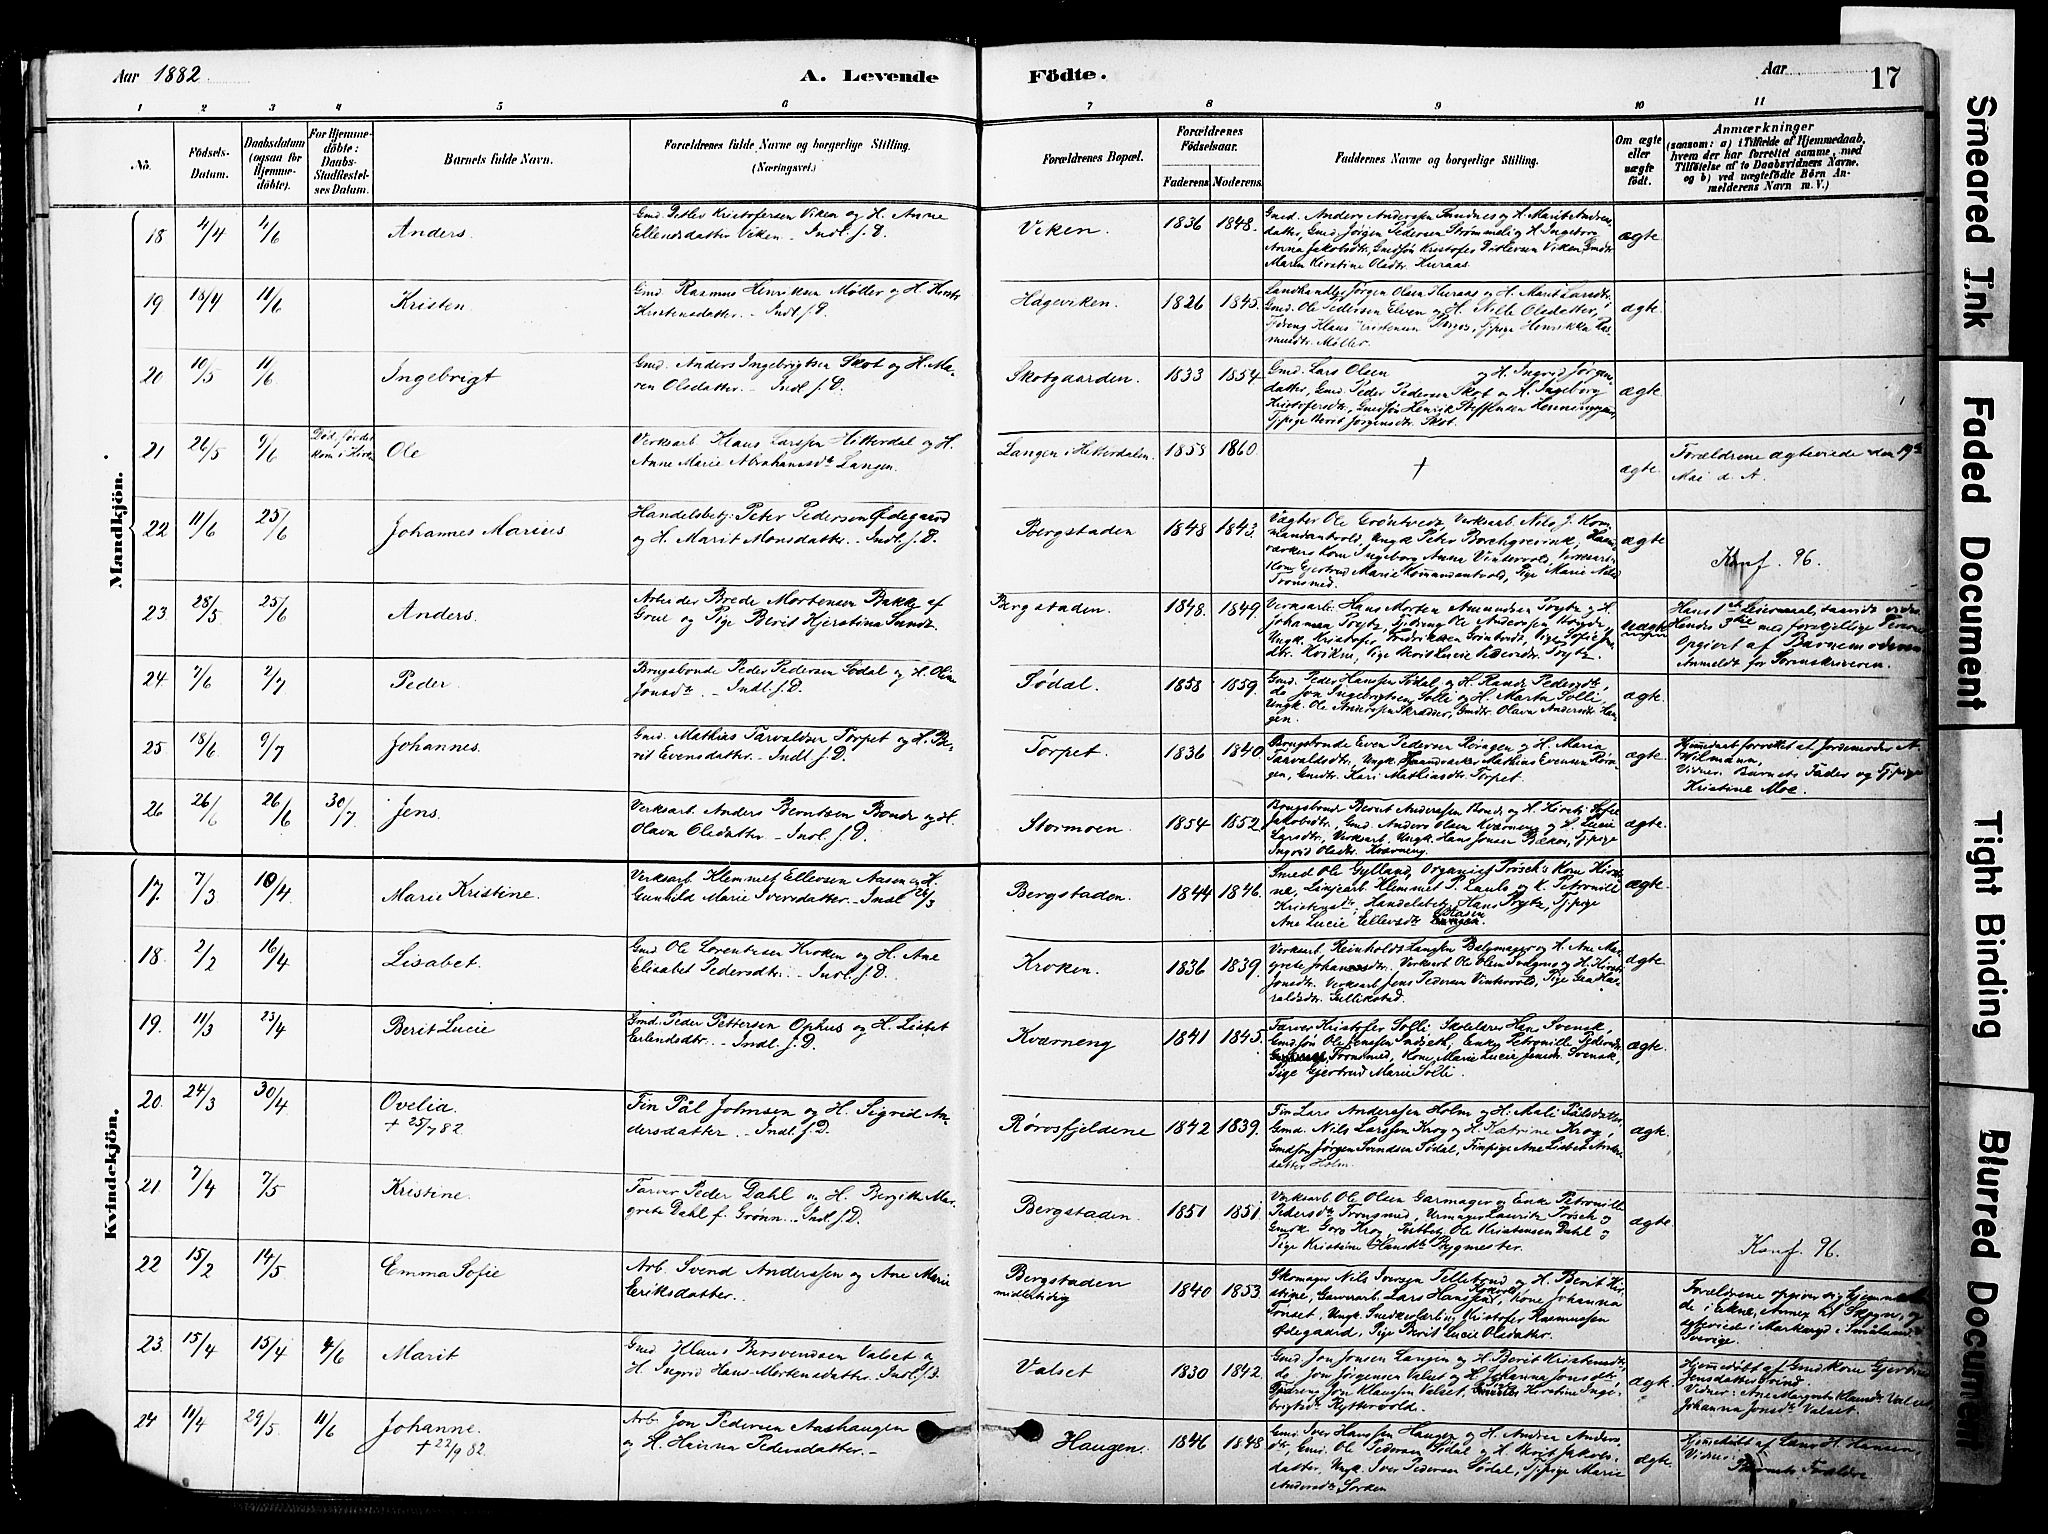 Aar 1882
A. Levende Födte.
Aar
17
1 2 3 4 5 6 7 8 9 10 11
No.
Födsels-Datum.
Daabsdatum (ogsaa for Hjemme-döbte).
For Hjemme-döbte: Daabs-Stadfæstel-ses Datum.
Barnets fulde Navn.
Forældrenes fulde Navne og borgerlige Stilling. (Næringsvei.)
Forældrenes Bopæl.
Forældrenes Födselsaar.
Faderens Moderens.
Faddernes Navne og borgerlige Stilling.
Om ægte eller uægte födt.
Anmærkninger
(saasom: a) i Tilfælde af Hjemmedaab,
hvem der har forrettet samme, med
Tilföielse af to Daabsvidners Navne,
og b) ved uægtefödte Börn An-
melderens Navn m. V.)
Mandkjön.
18 4/4 4/6 Anders. Gmd. Detlev Kristofersen Viken og H. Anne
Ellendsdatter Viken. Indl. f. D. Viken 1836 1848. ægte.
Gmd. Anders Anderssen Sundnes og H. Marit Anders-
datter, Gmd. Jørgen Pedersen Strømmeli og H. Ingeborg
Anna Jakobsdtr, Gmdsøn Kristofer Detlevsen Viken, Gmdtr
Maren Kirstine Olsdtr. Kuraas.
19 18/4 11/6 Kristen. Gmd. Rasmus Henriksen Møller og H.
Kristensdatter. Indl f. D. Hageviken. 1826 1845. ægte.
Landhandler Jørgen Olsen Kuraas og H. Marit Larsdtr,
Gmd. Ole Pedersen Elven og H. Nille Olsdatter,
Tjdreng Klaus Kristensen, Tjpige Henrikka Ras-
musdtr. Møller.
20 10/5 11/6 Ingebrigt Gmd. Anders Ingebrigtsen Skot og H. Ma-
ren Olsdatter. Indl f. D. Skotgaarden. 1833 1854 ægte
Gmd. Lars Olsen og H. Ingrid Jørgens-
datter, Gmd. Peder Pedersen Skot og H. Ingeborg
Kristofersdtr, Gmdsøn Henrik Steffensen
Tjpige Berit Jørgensdtr. Skot.
21 26/5 9/6 Død, før det
kom i Kirke Ole Verksarb Klaus Larssen Hitterdal og H.
Anne Marie Abrahamsdtr Langen. Langen i Hitterdalen. 1858 1860. + ægte. Forældrene ægteviede den 19de
Mai d. A.
22 11/6 25/6 Johannes Marius Handelsbetj: Peter Pedersen Ødegaard
og H. Marit Monsdatter. Indl. f. D. Bergstaden 1848 1843. ægte Konf. 96.
Vægter Ole Grøntvedt, Verksarb. Nils J. Kom-
mandantvold, Ungk. Peter Borchgrevink,
Kone Ingeborg Anna Vintervold,
Kone Gjertrud Marie Kommandantvold, Pige Marie Nilsd.
Tronsmed.
23 28/5 25/6 Anders. Arbeider Brede Mortensen Bakke af
Grue og Pige Berit Kjerstina Sundt. Bergstaden. 1848. 1849. Uægte
Verksarb. Hans Morten Amundsen Trytz og H.
Johanna Trytz, Tjdreng Ole Anderssen
Ungk. Kristofer Fredriksen Grøntvedt, Pige Sofie
Kvikne, Pige Berit Lucie Trytz.
Hans 1ste Leiermaal,
Hendes 3die med forskjellige
Opgivet af Barnemoderen
Anmeldt for Sorenskriveren.
24 2/6 2/7 Peder. Brugsbonde Peder Pedersen Sødal og H. Oline
Jonsdtr. Indl. f. D. Sødal. 1858 1859. ægte.
Gmd. Peder Hanssen Sødal og H. Randi Pedersdtr,
do Jon Ingebrigtsen Solli og H. Marta Solli,
Ungk. Ole Anderssen Skrædder, Gmdtr. Olava Andersdtr Hau-
gen.
25 18/6 9/7 Johannes. Gmd. Mathias Tarvaldsen Torpet og H. Be-
rit Evensdatter. Indl f. D. Torpet. 1836 1840. ægte.
Brugsbonde Even Pedersen Røragen og H. Maria
Tarvaldsdtr, Ungk. Haandverker Mathias Evensen Røra-
gen, Gmdtr. Kari Mathiasdtr Torpet.
Hjmedaab forrettet af Jordemoder A.
Wilmann,
Vidner: Barnets Fader og Tjpige
Kristine Moe.
26 26/6 26/6 30/7 Jens. Verksarb Anders Berntsen Bonde og H.
Olava Olsdatter. Indl. f. D. Stormoen. 1854 1852. ægte.
Brugsbonde Bernt Anderssen Bonde og H. Sofie
Jakobsdtr, Gmd. Anders Olsen Kværneng og H. Lucie
Larsdtr, Verksarb. Ungk. Hans Jensen Bækos, Tjpige
Ingrid Olsdtr. Kværneng.
Kvindekjön.
17. 7/3 10/4 Marie Kristine. Verksarb Klemmet Ellevsen Aasen og H.
Gunhild Marie Iversdatter. Indl 26/3 Bergstaden. 1844 1846. ægte.
Smed Ole Gylland, Organist Prösch's Kone Kirsti-
ne, Linjearb. Klemmet P. Lunlo og K. Petronille
Kristensdtr, Handelsbetj. Hans Trytz, Tjpige
Ane Lucie Ellevsdtr Aasen
18. 2/2 16/4 Lisabet. Gmd. Ole Lorentzen Kroken og H. Ane
Elisabet Pedersdtr. Indl. f. D. Kroken. 1836 1839. ægte.
Verksarb. Reinhold Langen Bælgmager og H. Ane Mar-
grete Johannesdtr. Verksarb Ole Olsen og H. Kirsti
Jonsdtr. Verksarb Jens Pedersen Vintervold, Pige Gea Ha-
raldsdtr. Gullikstad.
19. 11/3 23/4 Berit Lucie Gmd. Peder Pettersen Ophus og H. Lisbet
Erlendsdtr. Indl. f. D. Kværneng 1841 1845. ægte.
Farver Kristofer Solli, Skolelærer Hans Svensk,
Gmdsøn Ole Jenssen Indset, Enke Petronille Pedersdtr
Tronsmed, Kone Marie Lucie Jensdtr. Svensk,
Pige Gjertrud Marie Solli.
20. 24/3 30/4 Ovelia.
+ 25/7 82. Fin Pål Johnsen og H. Sigrid An-
dersdatter. Indl. f. D. Rørosfjeldene 1842 1839. ægte.
Fin Lars Anderssen Holm og H. Mali Pålsdatter,
Gmd. Nils Larssen Krog og H. Katrine Krog,
Gmdsøn Jørgen Svendsen Sødal, Finpige Ane Lisbet Anders-
datter Holm.
21 7/4 7/5 Kristine. Farver Peder Dahl og H. Bergitte Mar-
grete Dahl f. Grønn. Indl. f. D. Bergstaden 1851 1851. ægte
Verksarb Ole Olsen Garmager og Enke Petronille
Pedersdtr Tronsmed, Urmager Lauritz Prösch og
Georg Krog, Ole Kristensen Dahl og
Pige Kristine Hansdtr Bygmester.
Konf. 96.
22 15/2 14/5 Emma Sofie Arb. Svend Anderssen og Ane Marie
Eriksdatter. Bergstaden
midlertidig 1840 1853.
Skomager Nils Iversen Telletrud og H. Berit Kir-
stine, Garverarb. Lars Hanssen, Kone Johanna
Tonset, Ungk. Snedkerlærling Kristofer Rasmussen
Ødegaard, Pige Berit Lucie Olsdatter.
Forældrene opgiver sig hjemmehøren-
de i Eknæ, Annex til Skogn, og
ægteviede i Markaryd i Småland
Sverige.
23. 15/4 15/4 4/6 Marit Gmd Klaus Bersvendsen Valset og
H. Ingrid Hans-Mortensdatter. Indl. f. D. Valset 1830 1842. ægte.
Gmd. Jon Jonsen Langen og H. Berit Kristensdtr,
do Jon Jørgensen Valset og H. Johanna Jonsdtr,
Tjdreng Jon Klaussen Valset, Kirstine Inge-
brigtsdtr Ryttervold.
Hjmedøbt af Gmd Kone Gjertrud
Jensdatter
Vidner: Ane Margrete Klausdtr Valset
Johanna Jonsdtr Valset.
24 11/4 29/5 11/6 Johanne.
+ 22/9 82. Arb. Jon Pedersen Aashaugen
og H. Hanna Pedersdatter. Haugen. 1846 1848. ægte.
Gmd Iver Hanssen Haugen og H. Andrea Anders-
dtr, Gmd. Ole Pedersen Sødal og H. Berit Jakobs-
datter, Ungk. Iver Pedersen Sødal, Tjpige Marie
Andersdtr Sorken
Hjmedøbt af Lars H. Hansen,
Vidner:
Barnets Forældre
Smeared Ink
Faded Document
Tight Binding
Blurred Document